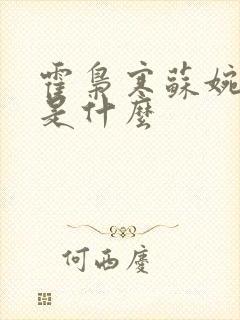 霍梟寒蘇婉
是什麼
何西慶